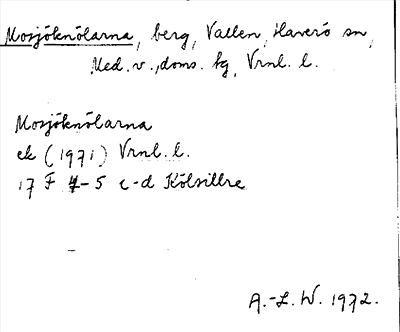 Mosjöknölarna, berg, Vallen, Haverö sn,
Med. v., doms. kg, Vrnl. l.
Mosjöknölarna
ek (1971) Vrnl. l.
17 F 4-5 c-d Kölsillre
A.-L. W. 1972.